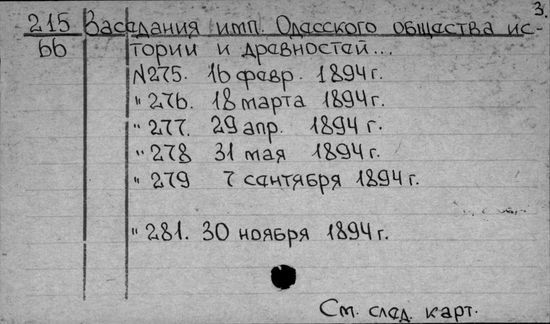 3.
215 Заседания имп. Одесского общества ис-
66 тории и древностей...
N275. 16 февр. 1894 г.
" 276. 18 марта 1894 г.
" 277. 29 апр. 1894 г.
" 278 31 мая 1894 г.
" 279 7 сентября 1894 г.
" 281. 30 ноября 1894 г.
См. след. карт.